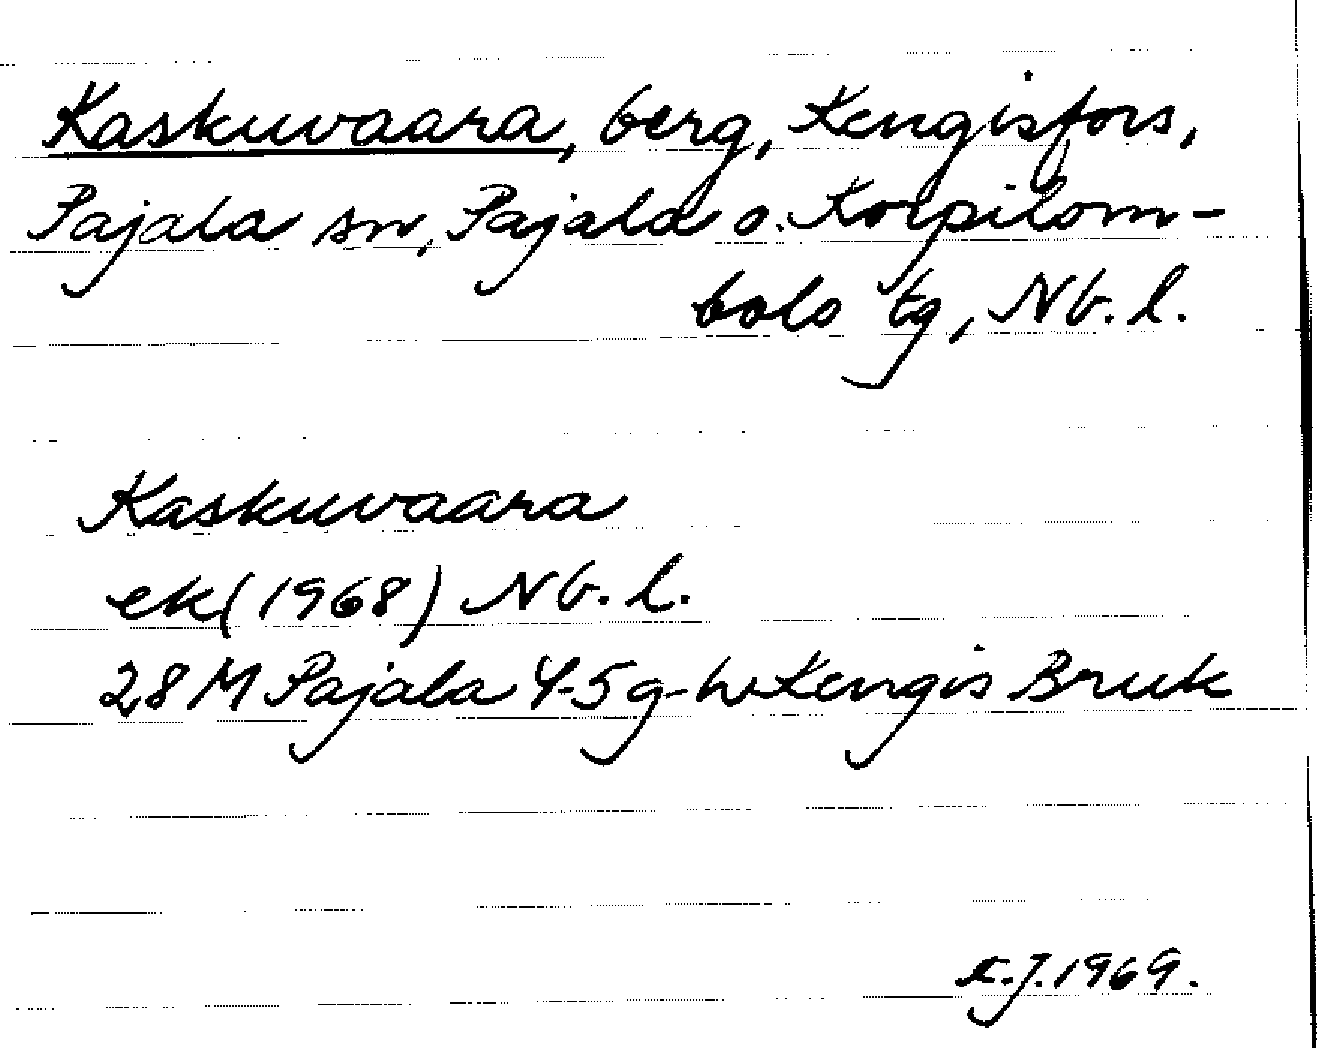 Kaskuvaara, berg, Kengisfors,
Pajala sn, Pajala o. Korpilom-
bolo tg, Nb. l.
Kaskuvaara
ek (1968) Nb. l.
28 M Pajala 4-5 g-h Kengis Bruk
J. 1969.